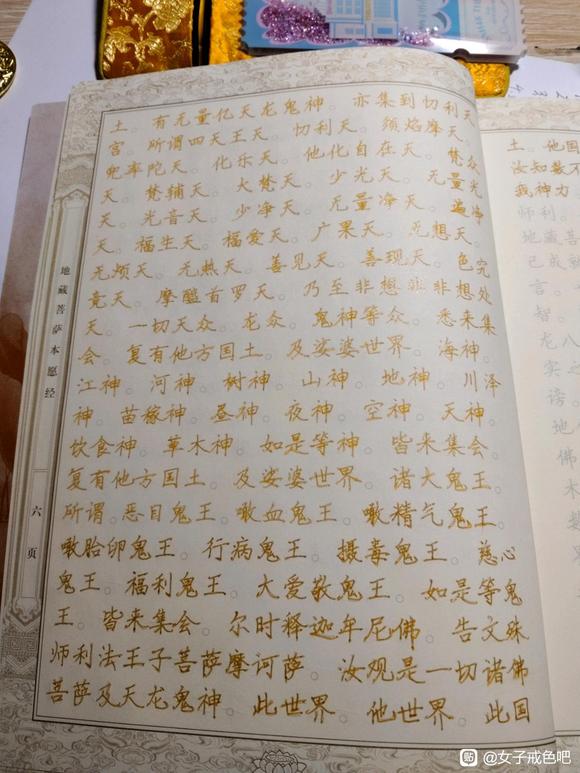 土。有无量亿天龙鬼神。亦集到忉利天
宫。所谓四天王天。忉利天。须焰摩天。
兜率陀天。化乐天。他化自在天。梵众
天。梵辅天。大梵天。少光天。无量光
天。光音天。少净天。无量净天。遍净
天。福生天。福爱天。广果天。无想天。
无烦天。无热天。善见天。善现天。色究
竟天。摩醯首罗天。乃至非想非非想处
天。一切天众。龙众。鬼神等众。悉来集
会。复有他方国土。及娑婆世界。海神。
江神。河神。树神。山神。地神。川泽
神。苗稼神。昼神。夜神。空神。天神。
饮食神。草木神。如是等神。皆来集会。
复有他方国土。及娑婆世界。诸大鬼王。
所谓。恶目鬼王。噉血鬼王。噉精气鬼王。
噉胎卵鬼王。行病鬼王。摄毒鬼王。慈心
鬼王。福利鬼王。大爱敬鬼王。如是等鬼
王。皆来集会。尔时释迦牟尼佛。告文殊
师利法王子菩萨摩诃萨。汝观是一切诸佛
菩萨及天龙鬼神。此世界。他世界。此国
地藏菩萨本愿经
六页
土。他国
汝知数不
我神力
师利。
地藏菩
已成就
言。
智。
龙八
实之
谤。
地
佛
木
数
贴 @女子戒色吧